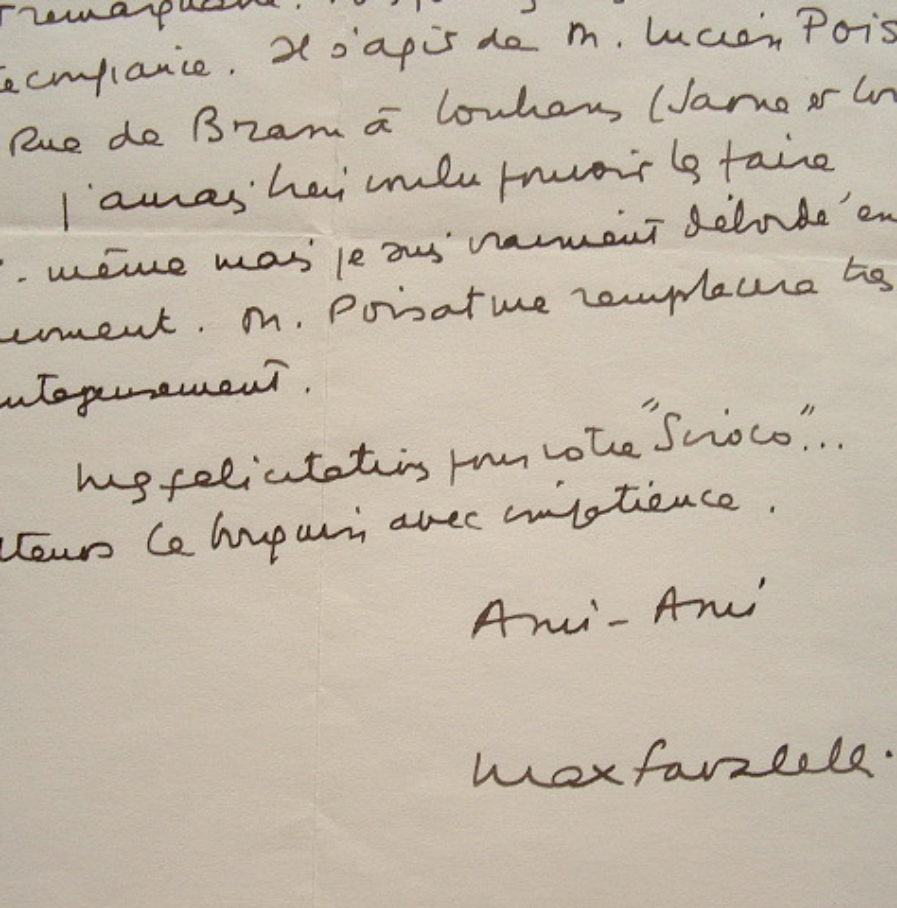 remarquable.
confiance. Il s'agit de M. Lucien Pois
Rue de Bram à Louhans (Saone et Loi
J'aurais bien voulu pouvoir le faire
même mais je suis vraiment débordé en
moment. M. Poisat me remplacera très
ntageusement.
Mes félicitations pour votre "Siroco"...
ttends le bouquin avec impatience.
Ami-Ami
Max Favalelli.